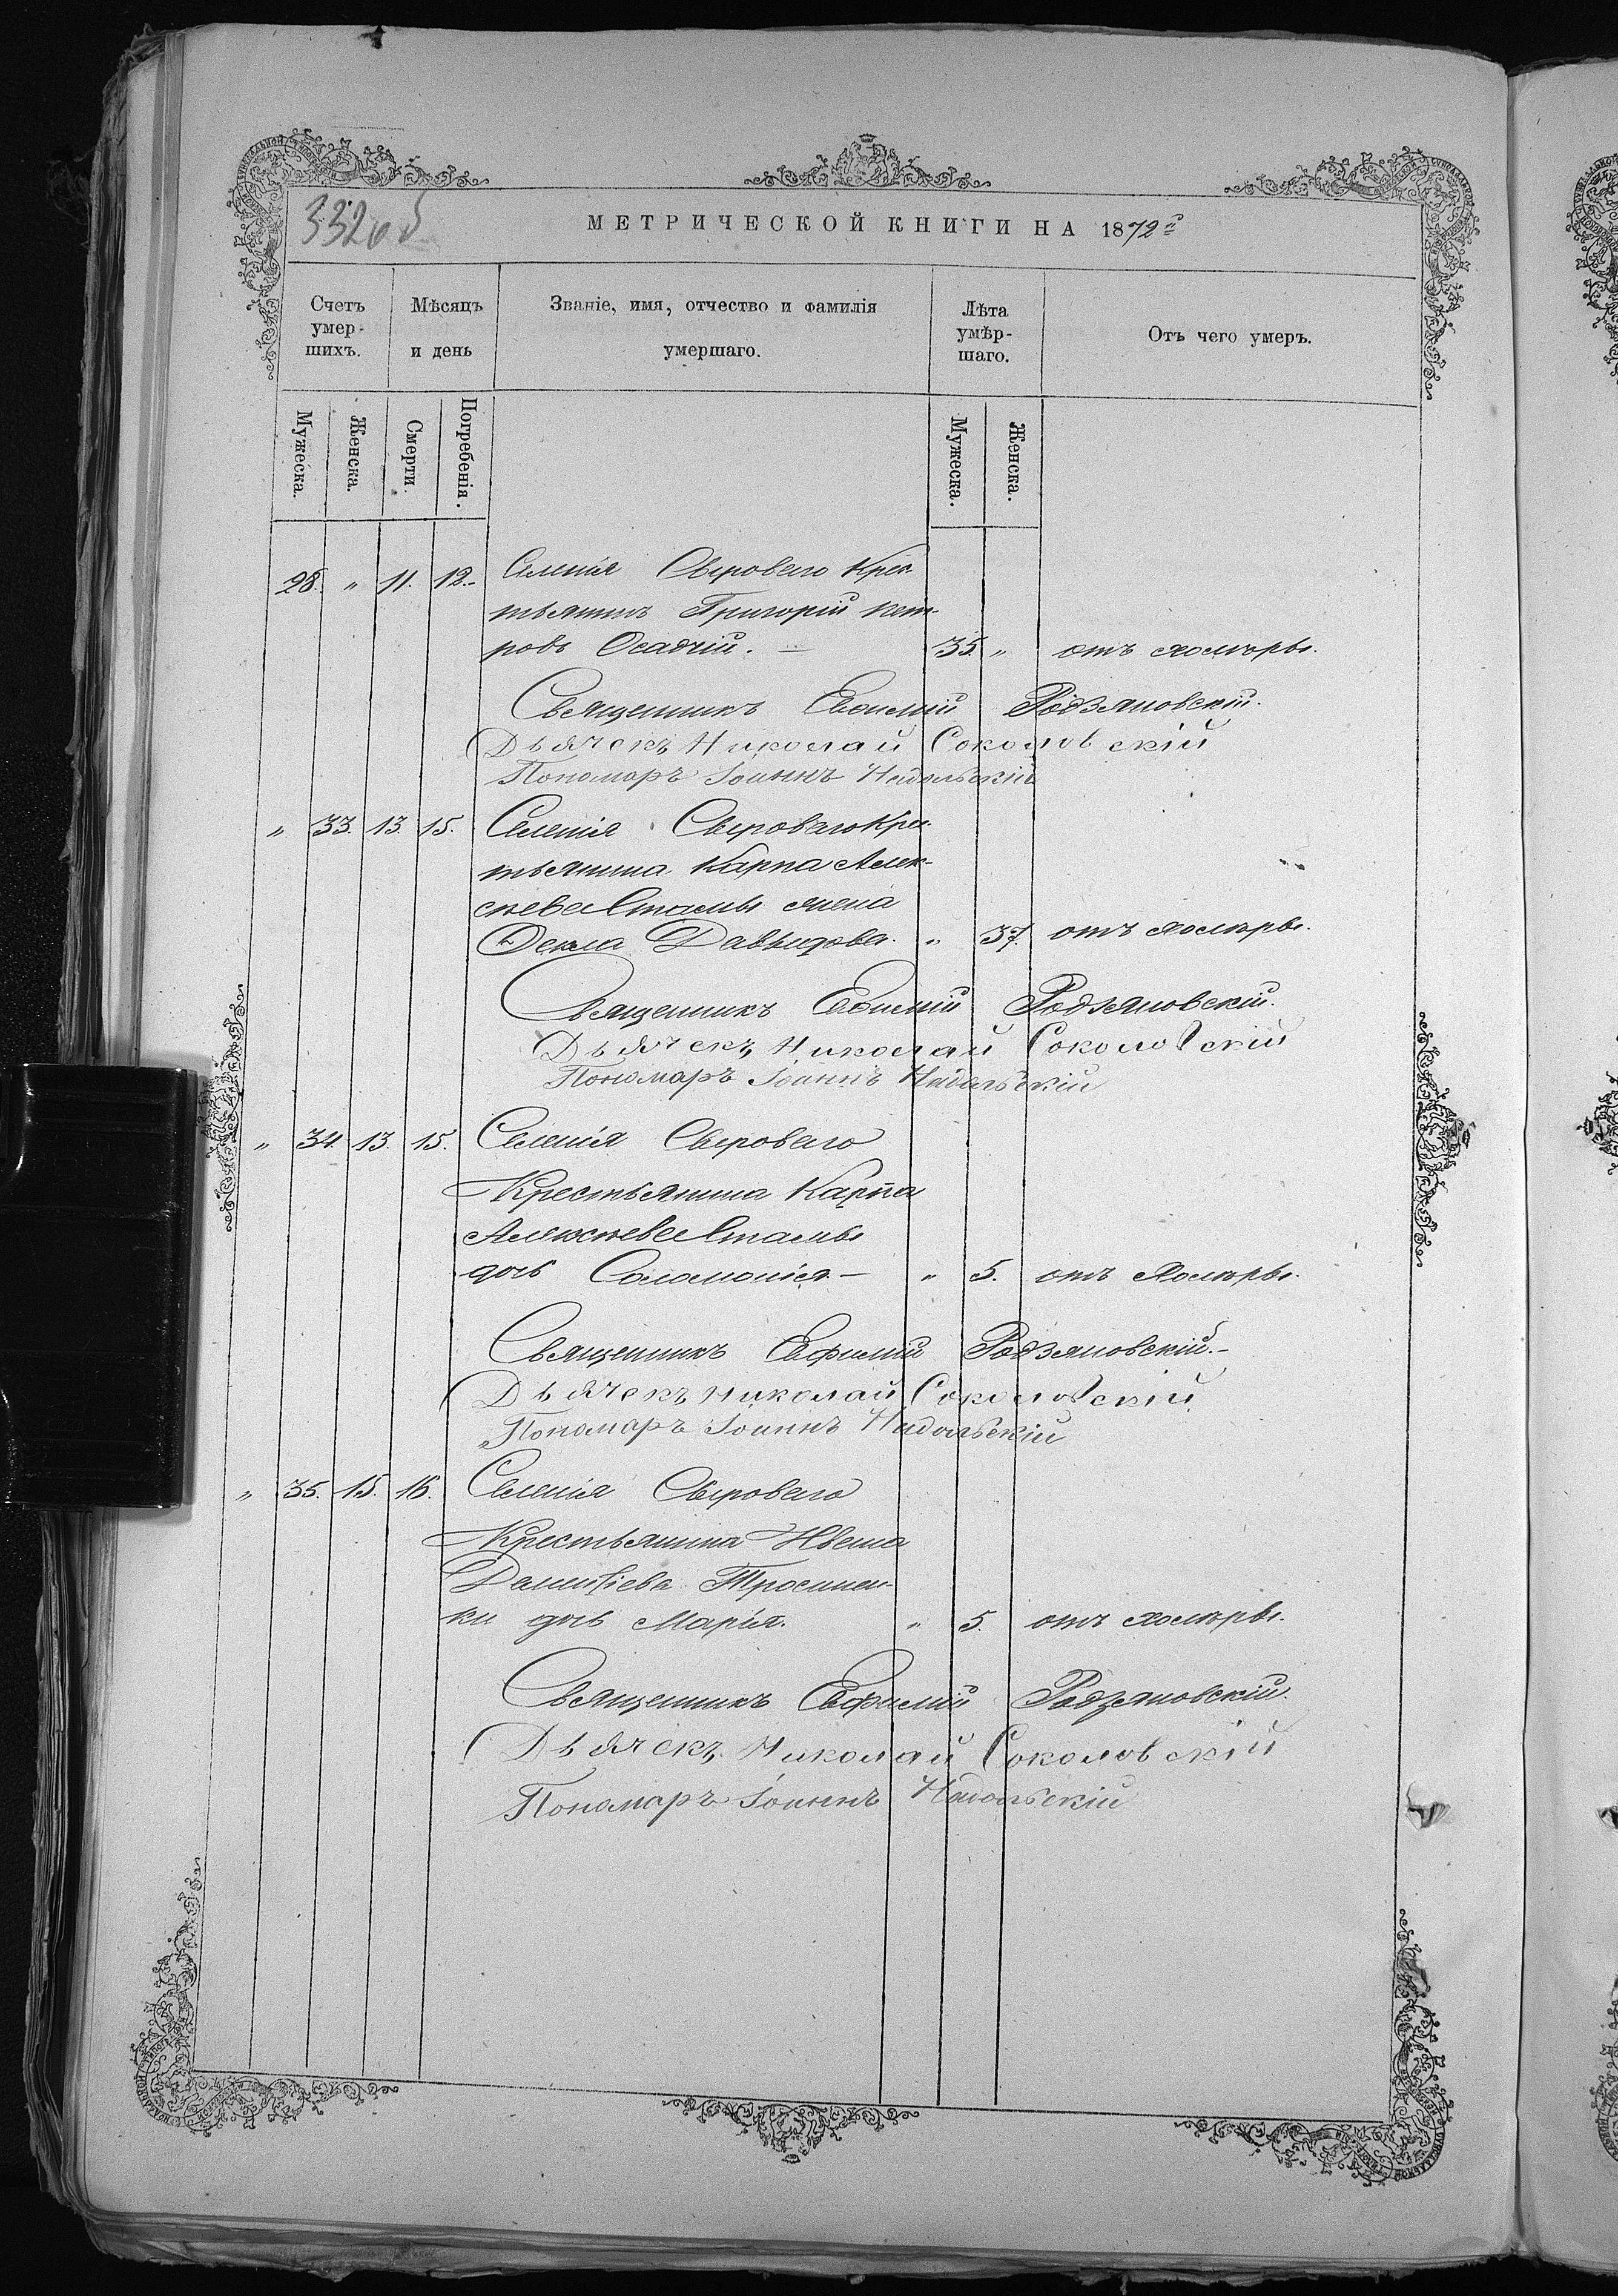 332об
МЕТРИЧЕСКОЙ КНИГИ НА 1872й
Счетъ умерших.
Мѣсяцъ и день
Званіе, имя, отчество и фамилія умершаго.
Лѣта умѣршаго.
Отъ чего умеръ.
Мужеска.
Женска.
Смерти.
Погребенія.
Мужеска.
Женска.
28. " 11. 12. Селенія Сыроваго Крес
тьянинъ Григорій Пет-
ровъ Осадчій. — 35. " отъ холѣры.
Священникъ Евѳимій Родзяновскій.
Дьячекъ Николай Соколовскій
Пономаръ Іоаннъ Надольскій
" 33. 13. 15. Селенія Сыроваго Крес
тьянина Карпа Алек-
сѣева Стамы жена
Ѳекла Давыдова. " 37. отъ холѣры.
Священникъ Евѳимій Родзяновскій.
Дьячекъ Николай Соколовскій
Пономаръ Іоаннъ Надольскій
" 34. 13. 15. Селенія Сыроваго
Крестьянина Карпа
Алексѣева Стамы
дочь Соломонія — " 5. отъ Холѣры.
Священникъ Евфимій Родзяновскій. —
Дьячекъ Николай Соколовскій
Пономаръ Іоаннъ Надольскій
" 35. 15. 16. Селенія Сыроваго
Крестьянина Ивана
Даниліева Тросинен-
ки дочь Марія. " 5. отъ холѣры.
Священникъ Евфимій Родзяновскій.
Дьячекъ Николай Соколовскій
Пономаръ Іоаннъ Надольскій